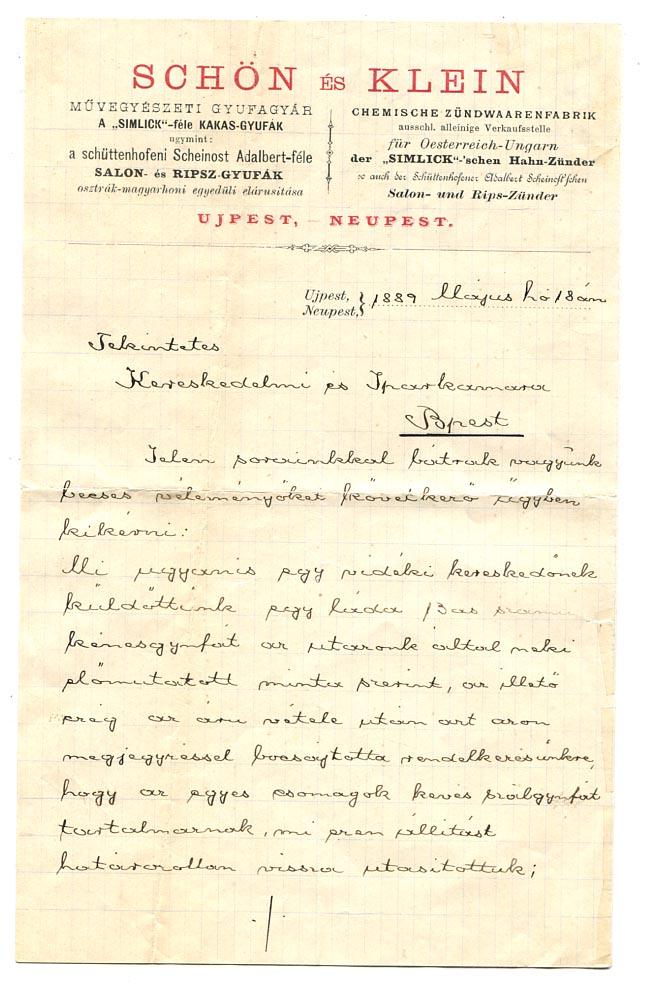 SCHÖN ÉS KLEIN
MŰVEGYÉSZETI GYUFAGYÁR
A „SIMLICK“-féle KAKAS-GYUFÁK
ugymint:
a schüttenhofeni Scheinost Adalbert-féle
SALON- és RIPSZ-GYUFÁK
osztrák-magyarhoni egyedüli elárusitása
CHEMISCHE ZÜNDWAARENFABRIK
ausschl. alleinige Verkaufsstelle
für Oesterreich-Ungarn
der „SIMLICK“-'schen Hahn-Zünder
so auch der Schüttenhofener Adalbert Scheinost'schen
Salon- und Rips-Zünder
UJPEST, – NEUPEST.
Ujpest, Neupest, 1889 Május hó 18án
Tekintetes
Kereskedelmi és Iparkamara
Bpest
Jelen sorainkkal bátrak vagyunk
becses véleményöket következő ügyben
kikérni:
Mi ugyanis egy vidéki kereskedőnek
küldöttünk egy láda 13as számú
kénesgyufát az utazónk által neki
előmutatott minta szerint, az illető
czég az áru vétele után azt azon
megjegyzéssel bocsájtotta rendelkezésünkre,
hogy az egyes csomagok kevés szálgyufát
tartalmaznak, mi ezen állitást
határozottan vissza utasitottuk;
./.